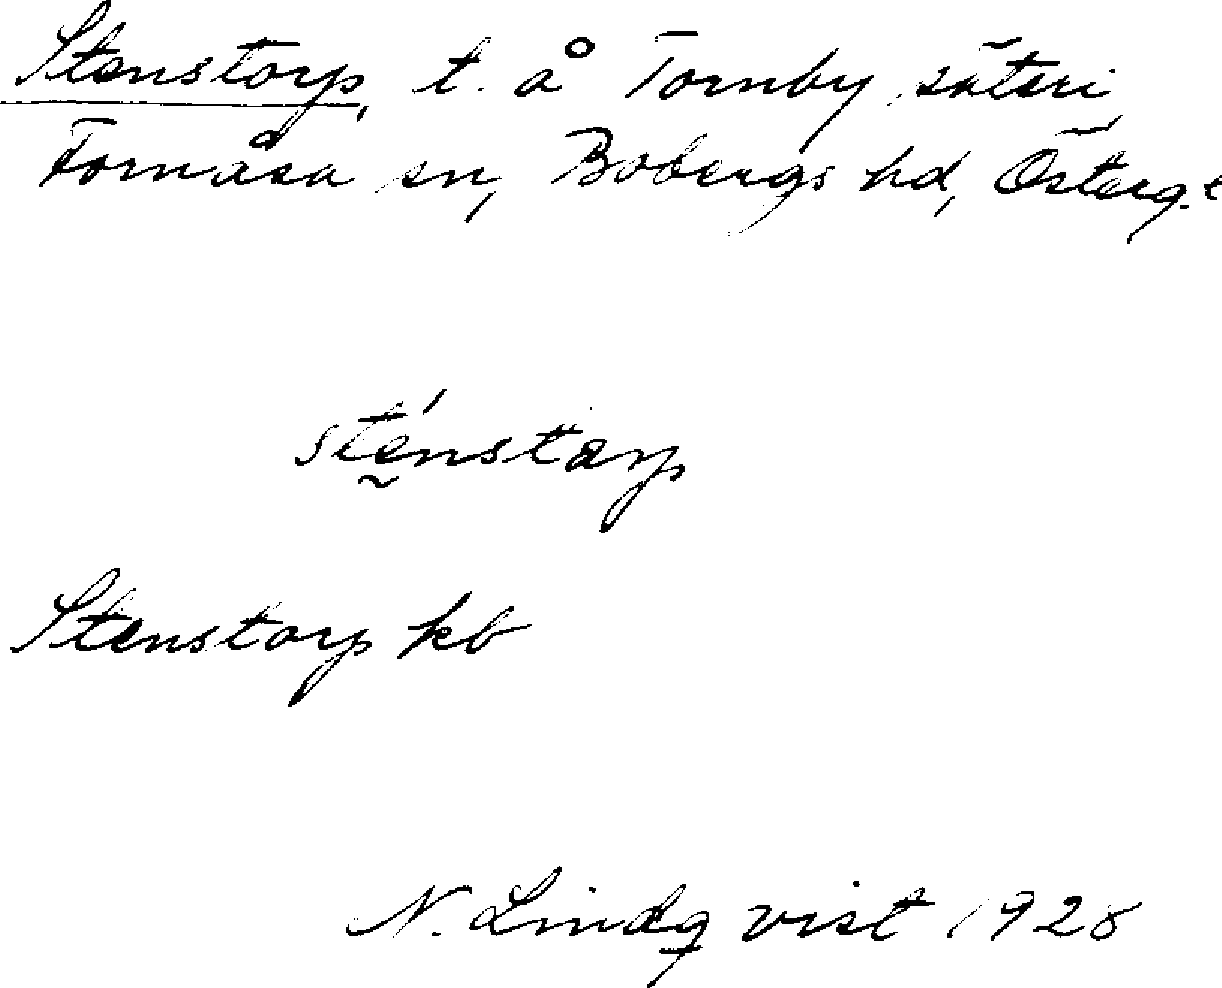 Stenstorp, t. å Tornby säteri,
Fornåsa sn, Bobergs hd, Österg.
stḛ́nstɑrp
Stenstorp kb
N. Lindqvist 1928